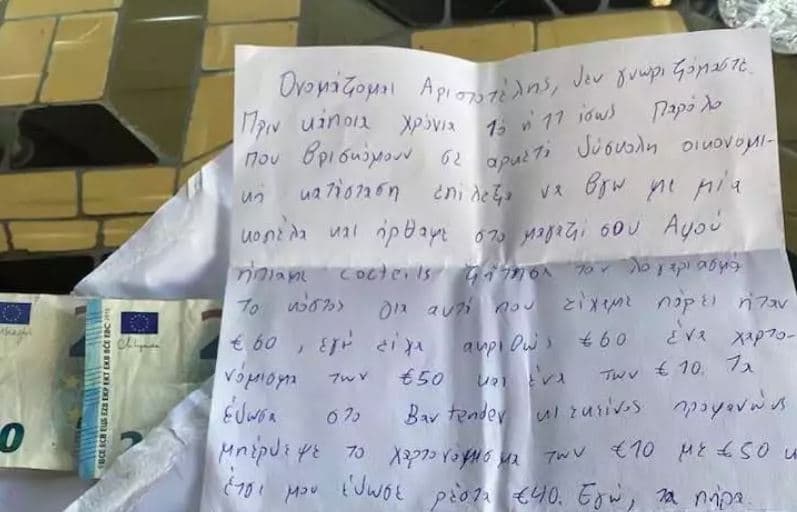 Ονομάζομαι Αριστοτέλης, δεν γνωριζόμαστε.
Πριν κάποια χρόνια 10 ή 11 ίσως παρόλο
που βρισκόμουν σε αρκετά δύσκολη οικονομι-
κή κατάσταση επέλεξα να βγω με μία
κοπέλα και ήρθαμε στο μαγαζί σου Αφού
ήπιαμε cocteils ζήτησα τον λογαριασμό
Το κόστος για αυτά που είχαμε πάρει ήταν
€60, εγώ είχα ακριβώς €60 ένα χαρτο-
νόμισμα των €50 και ένα των €10. Τα
έδωσα στο Bartender κι εκείνος προφανώς
μπέρδεψε το χαρτονόμισμα των €10 με €50 κ
έτσι μου έδωσε ρέστα €40. Εγώ, τα πήρα.
BCE ECB EЦБ EZB EKP EKT EKB BĊE EBC 2015
0
2